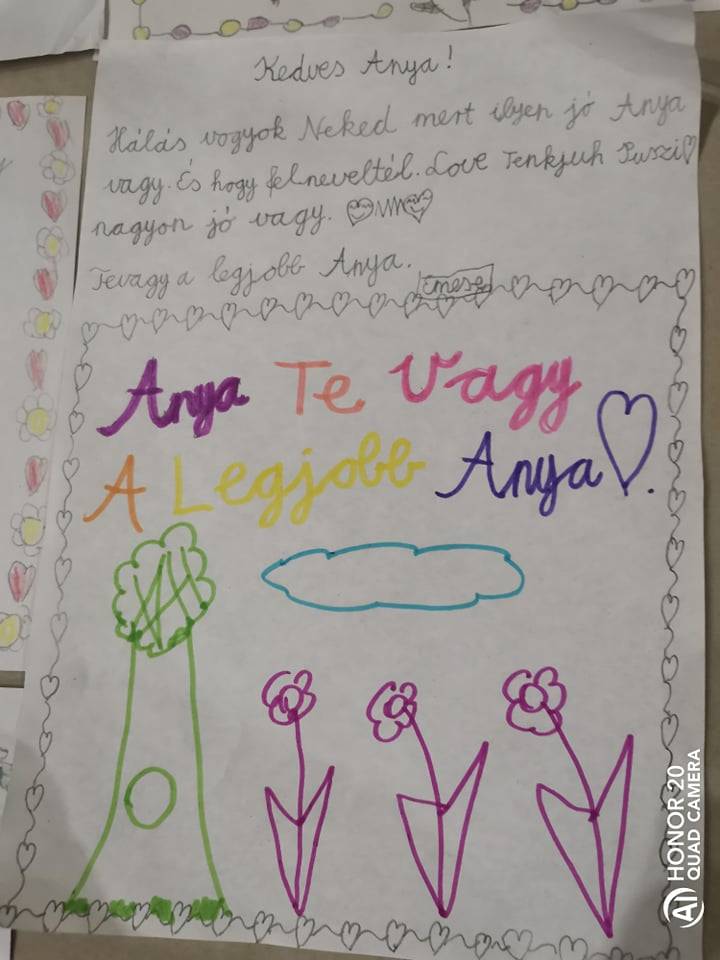 Kedves Anya!
Hálás vogyok Neked mert ilyen jó Anya
vagy. És hogy felneveltél. Love Tenkjuh Puszi♡
nagyon jó vagy.
Tevagy a legjobb Anya.
Emese
Anya Te Vagy
A Legjobb Anya♡.
HONOR 20
QUAD CAMERA
AI